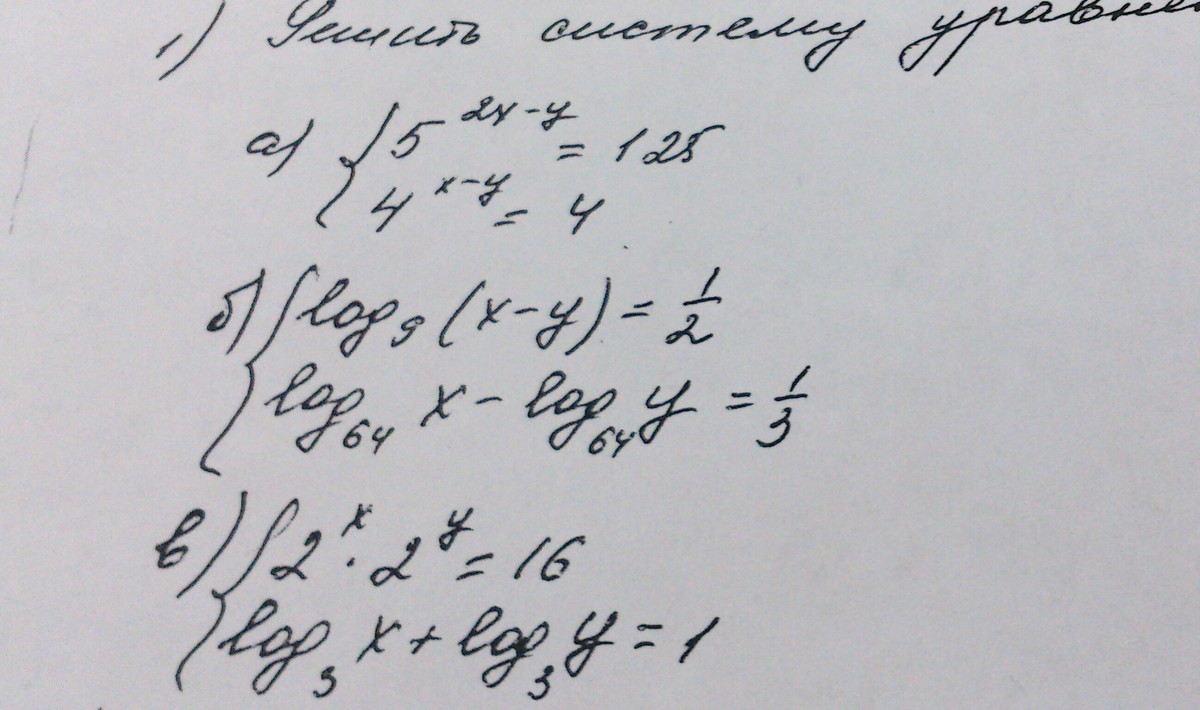 1) Решить систему уравне
а) { 5^{2x-y} = 125
4^{x-y} = 4
б) { log_9 (x-y) = 1/2
log_64 x - log_64 y = 1/3
в) { 2^x · 2^y = 16
log_3 x + log_3 y = 1